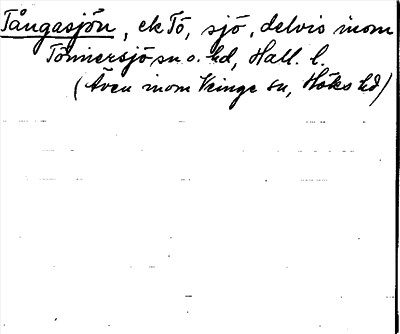 Tångasjön, ek Tö, sjö, delvis inom
Tönnersjö sn o. hd, Hall. l.
(Även inom Veinge sn, Höks hd)